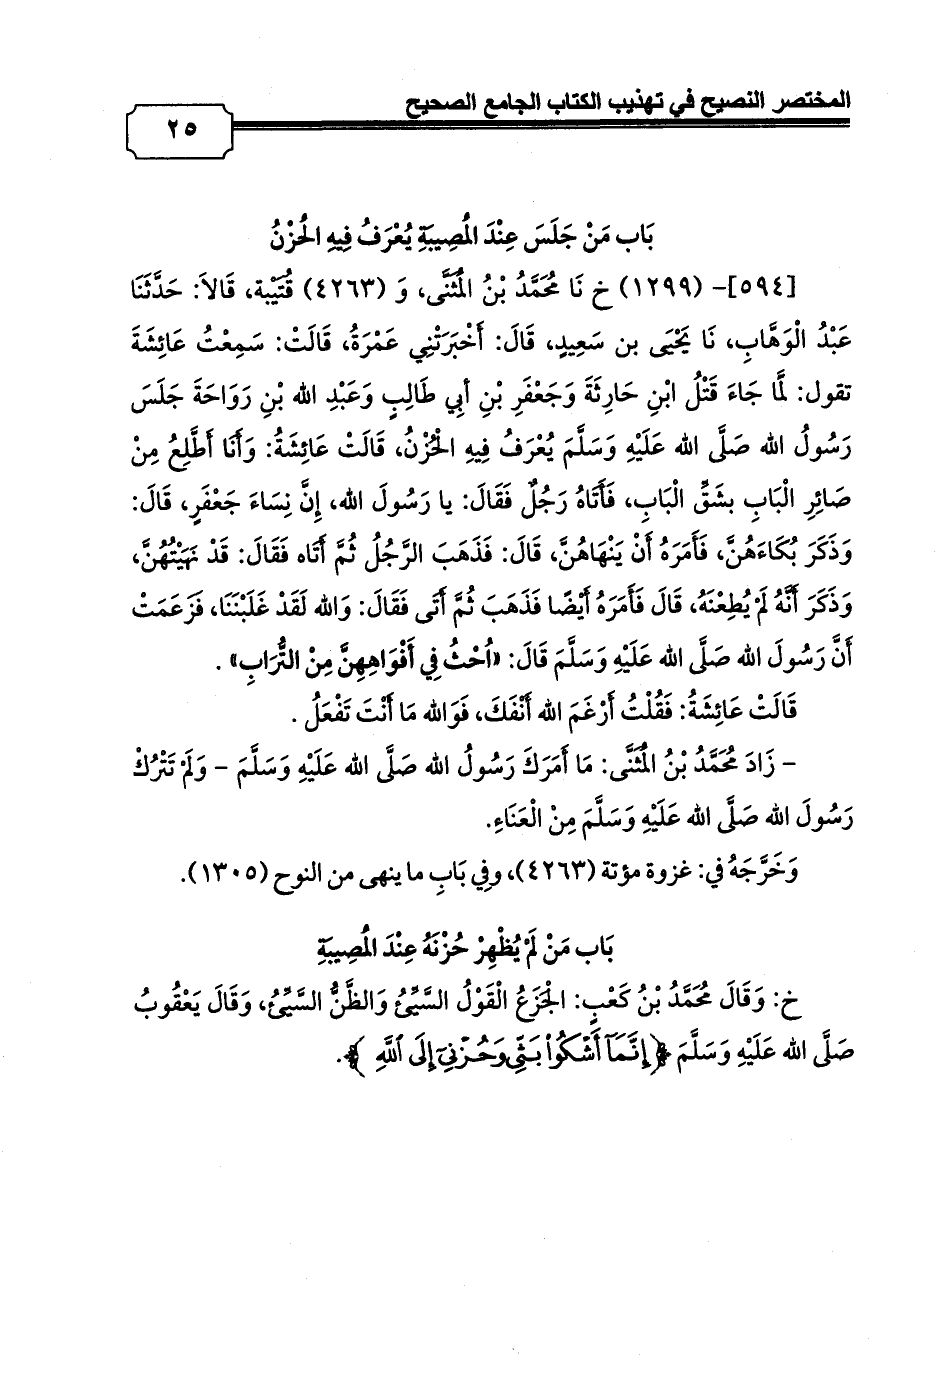 المختصر النصيح في تهذيب الكتاب الجامع الصحيح
٢٥
بَاب مَنْ جَلَسَ عِنْدَ المُصِيبَةِ يُعْرَفُ فِيهِ الحُزْنُ
[٥٩٤]- (١٢٩٩) خ نَا مُحَمَّدُ بْنُ المُثَنَّى، وَ (٤٢٦٣) قُتَيْبة، قَالاَ: حَدَّثَنَا
عَبْدُ الْوَهَّابِ، نَا يَحْيَى بن سَعِيدٍ، قَالَ: أَخْبَرَتْنِي عَمْرَةُ، قَالَتْ: سَمِعْتُ عَائِشَةَ
تقول: لمَّا جَاءَ قَتْلُ ابْنِ حَارِثَةَ وَجَعْفَرِ بْنِ أبِي طَالِبٍ وَعَبْدِ الله بْنِ رَوَاحَةَ جَلَسَ
رَسُولُ الله صَلَّى الله عَلَيْهِ وَسَلَّمَ يُعْرَفُ فِيهِ الحُزْنُ، قَالَتْ عَائِشَةُ: وَأَنَا أَطَّلِعُ مِنْ
صَائِرِ الْبَابِ بشَقِّ الْبَابِ، فَأَتَاهُ رَجُلٌ فَقَالَ: يا رَسُولَ الله، إِنَّ نِسَاءَ جَعْفَرٍ، قَالَ:
وَذَكَرَ بُكَاءَهُنَّ، فَأَمَرَهُ أَنْ يَنْهَاهُنَّ، قَالَ: فَذَهَبَ الرَّجُلُ ثُمَّ أتَاه فَقَالَ: قَدْ نَهَيْتُهُنَّ،
وَذَكَرَ أَنَّهُ لَمْ يُطِعْنَهُ، قَالَ فَأَمَرَهُ أَيْضًا فَذَهَبَ ثُمَّ أَتَى فَقَالَ: وَالله لَقَدْ غَلَبْنَنَا، فَزَعَمَتْ
أَنَّ رَسُولَ الله صَلَّى الله عَلَيْهِ وَسَلَّمَ قَالَ: «احْثُ فِي أَفْوَاهِهِنَّ مِنْ التُّرَابِ» .
قَالَتْ عَائِشَةُ: فَقُلْتُ أَرْغَمَ الله أَنْفَكَ، فَوَالله مَا أَنْتَ تَفْعَلُ .
- زَادَ مُحَمَّدُ بْنُ المُثَنَّى: مَا أَمَرَكَ رَسُولُ الله صَلَّى الله عَلَيْهِ وَسَلَّمَ - وَلَمْ تَتْرُكْ
رَسُولَ الله صَلَّى الله عَلَيْهِ وَسَلَّمَ مِنْ الْعَنَاءِ.
وَخَرَّجَهُ في: غزوة مؤتة (٤٢٦٣)، وفِي بَابِ ما ينهى من النوح (١٣٠٥).
بَاب مَنْ لَمْ يُظْهِرْ حُزْنَهُ عِنْدَ المُصِيبَةِ
خ: وَقَالَ مُحَمَّدُ بْنُ كَعْبٍ: الجَزَعُ الْقَوْلُ السَّيِّئُ وَالظَّنُّ السَّيِّئُ، وَقَالَ يَعْقُوبُ
صَلَّى الله عَلَيْهِ وَسَلَّمَ ﴿إِنَّمَآ أَشْكُوا۟ بَثِّى وَحُزْنِىٓ إِلَى ٱللَّهِ﴾.